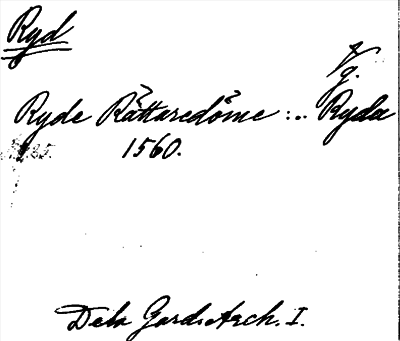 Ryd
Vg.
Ryde Rättaredöme :.. Ryda
1560.
Dela Gard. Arch. I.